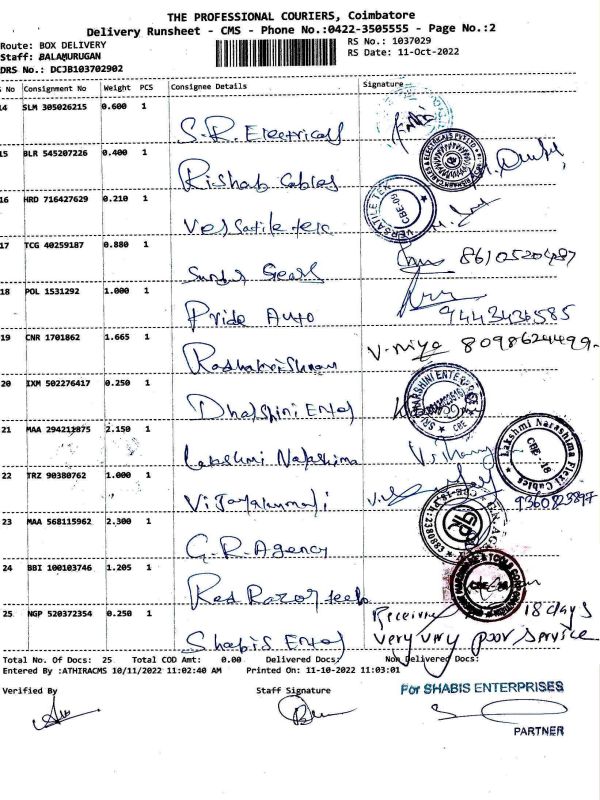 THE PROFESSIONAL COURIERS, Coimbatore
Delivery Runsheet - CMS - Phone No.:0422-3505555 - Page No.:2
Route: BOX DELIVERY RS No.: 1037029
Staff: BALAMURUGAN RS Date: 11-Oct-2022
DRS No.: DCJB103702902
No Consignment No Weight PCS Consignee Details Signature
14 SLM 305026215 0.600 1 S.R. Electricals
15 BLR 545207226 0.400 1 Rishab Cables
16 HRD 716427629 0.210 1 Versatile tek
VERSATILE TEK CBE-09
17 TCG 40259187 0.880 1 Gears 8610520487
18 POL 1531292 1.000 1 Pride Auto 9443436585
19 CNR 1701862 1.665 1 Radhakrishnan 8098624499
20 IXM 502276417 0.250 1 Dharshini Ent
SRI DHARSHINI ENTERPRISE CBE
21 MAA 294211875 2.150 1 Lakshmi Narashima
Lakshmi Narashima Flexi Cables CBE-18
22 TRZ 90380762 1.000 1 Vijayakumari 9360825897
23 MAA 568115962 2.300 1 G.R. Agency
24 BBI 100103746 1.205 1 Red Razor teek
25 NGP 520372354 0.250 1 Shabis Ent Receive 18 days
very very poor service
Total No. Of Docs: 25 Total COD Amt: 0.00 Delivered Docs: Non Delivered Docs:
Entered By :ATHIRACMS 10/11/2022 11:02:40 AM Printed On: 11-10-2022 11:03:01
Verified By Staff Signature For SHABIS ENTERPRISES
PARTNER